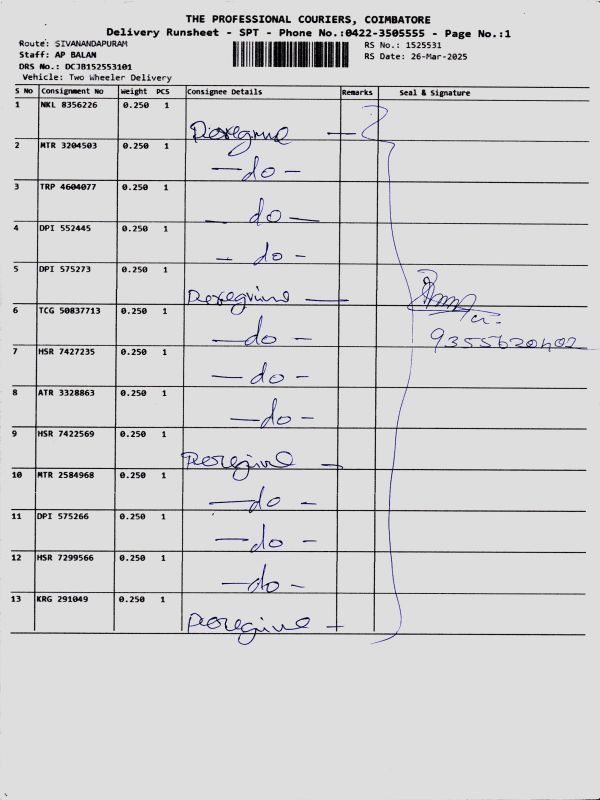 THE PROFESSIONAL COURIERS, COIMBATORE
Delivery Runsheet - SPT - Phone No.:0422-3505555 - Page No.:1
Route: SIVANANDAPURAM RS No.: 1525531
Staff: AP BALAN RS Date: 26-Mar-2025
DRS No.: DCJB152553101
Vehicle: Two Wheeler Delivery
S No Consignment No Weight PCS Consignee Details Remarks Seal & Signature
1 NKL 8356226 0.250 1 Peregrine
2 MTR 3204503 0.250 1 —do—
3 TRP 4604077 0.250 1 —do—
4 DPI 552445 0.250 1 —do—
5 DPI 575273 0.250 1 Peregrine
6 TCG 50837713 0.250 1 —do—
9355620402
7 HSR 7427235 0.250 1 —do—
8 ATR 3328863 0.250 1 —do—
9 HSR 7422569 0.250 1 Peregrine
10 MTR 2584968 0.250 1 —do—
11 DPI 575266 0.250 1 —do—
12 HSR 7299566 0.250 1 —do—
13 KRG 291049 0.250 1 Peregrine